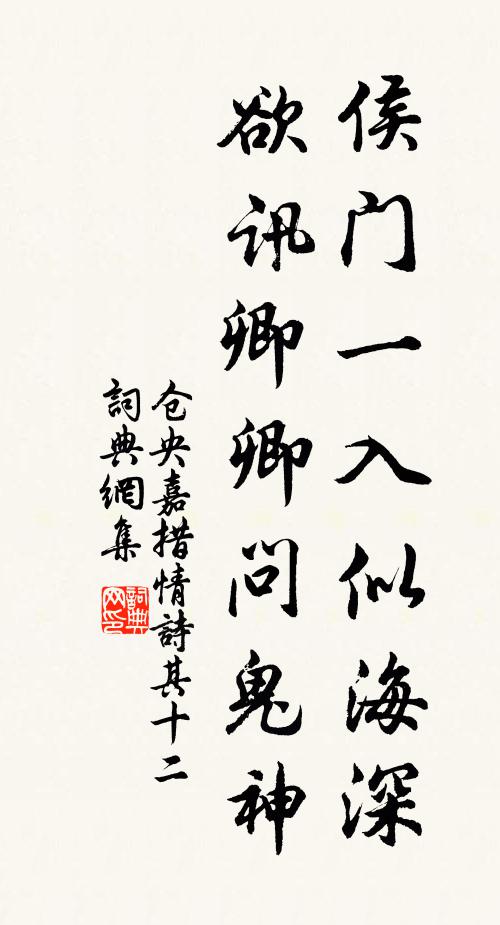 侯门一入似海深
欲讯卿卿问鬼神
仓央嘉措情詩其十二
詞典網集
詞典网印